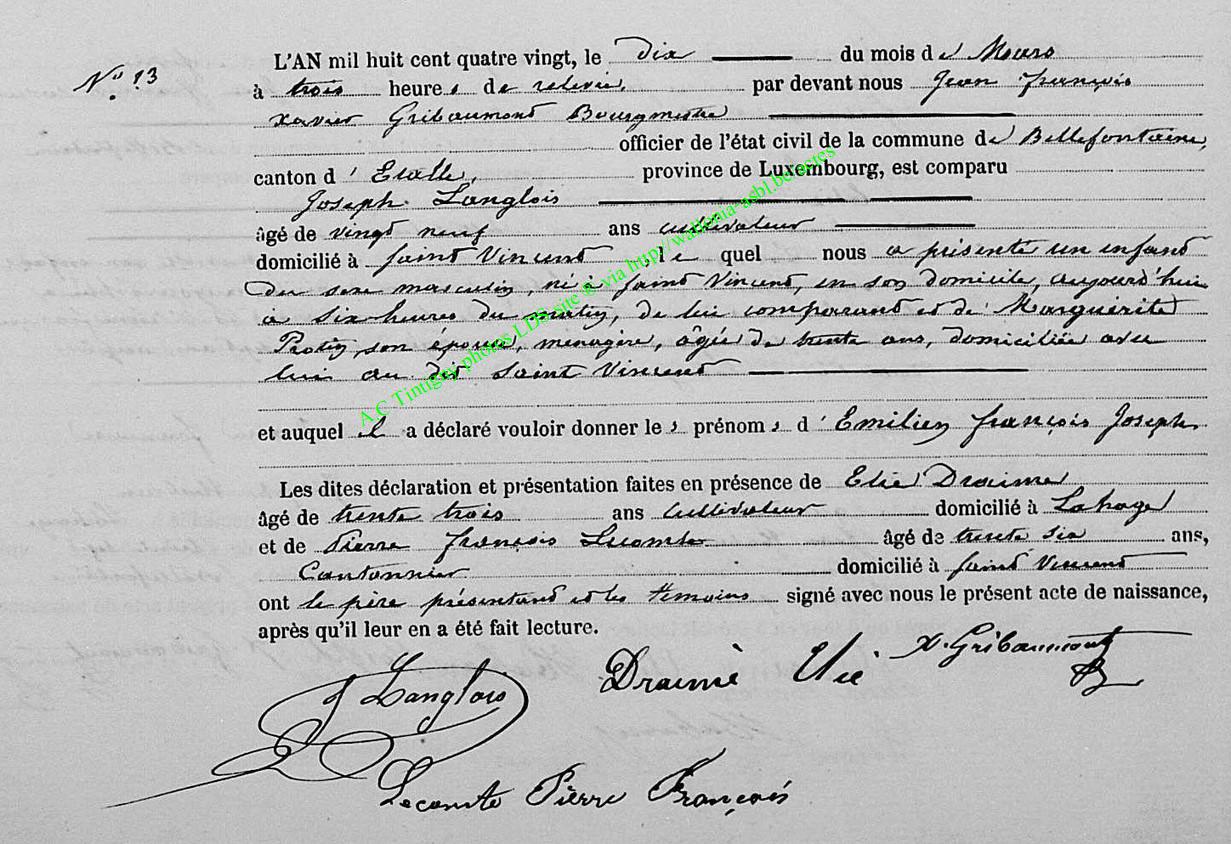 N° 13
L'AN mil huit cent quatre vingt, le dix du mois de Mars
à trois heures de relevée, par devant nous Jean François
Xavier Gribaumont Bourgmestre
officier de l'état civil de la commune de Bellefontaine,
canton d'Etalle, province de Luxembourg, est comparu
Joseph Langlois
âgé de vingt neuf ans cultivateur
domicilié à Saint Vincent, le quel nous a présenté un enfant
du sexe masculin, né à Saint Vincent, en son domicile, aujourd'hui
a six heures du matin, de lui comparant et de Marguerite
Protin, son épouse, ménagère, âgée de trente ans, domiciliée avec
lui au dit Saint Vincent
et auquel il a déclaré vouloir donner les prénoms d'Emilien François Joseph
Les dites déclaration et présentation faites en présence de Elie Draime
âgé de trente trois ans cultivateur domicilié à Lahage
et de Pierre François Lecomte âgé de trente six ans,
Cantonnier domicilié à Saint Vincent
ont le père présentant et les témoins signé avec nous le présent acte de naissance,
après qu'il leur en a été fait lecture.
X. Gribaumont
J Langlois Draimè Elie
Lecomte Pierre François
A.C Tintigny photos LDB site & via http://wallonia-asbl.be/actes